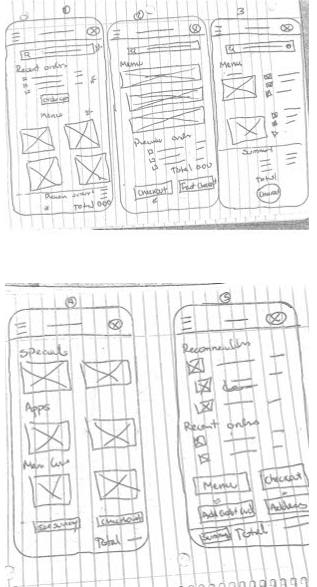 1
Recent orders
Menu
Preview order
Total 000
2
Menu
Preview order
Total 000
Checkout
Fast Checkout
3
Menu
Summary
Total
4
Specials
Apps
Main
See summary
Checkout
Total
5
Recent orders
Menu
Checkout
Add Credit Card
Address
Summary
Total